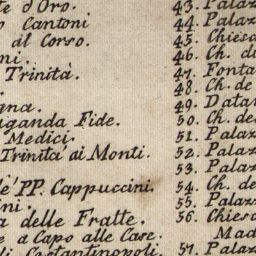 te d'Oro.
o Cantoni
al Corso.
ni.
Trinità.
gna.
aganda Fide.
Medici.
Trinità ai Monti.
è PP. Cappuccini.
ni.
a delle Fratte.
e a Capo alle Case.
di Costantinopoli.
43. Palaz
44. Palaz
45. Chiesa
46. Ch. di
47. Fonta
48. Ch. de
49. Datar
50. Ch. de
51. Palaz
52. Palaz
53. Palaz
54. Ch. de
55. Palaz
56. Chiesa
Mad
57. Palaz